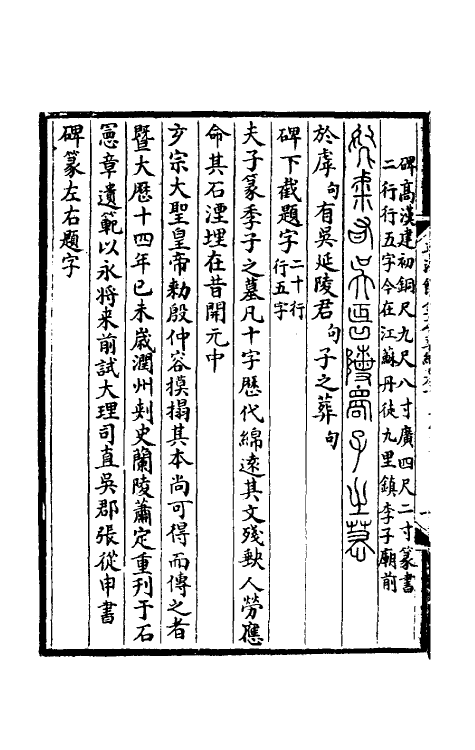 碑高漢建初銅尺九尺八寸廣四尺二寸篆書
二行行五字今在江蘇丹徒九里鎮季子廟前
於虖句有吳延陵君句子之葬句
碑下截題字二十行行五字
夫子篆季子之墓凡十字歷代綿遠其文殘缺人勞應
命其石湮埋在昔開元中
玄宗大聖皇帝勅殷仲容摸搨其本尚可得而傳之者
暨大歷十四年己未歲潤州刺史蘭陵蕭定重刊于石
憲章遺範以永將来前試大理司直吳郡張從申書
碑篆左右題字